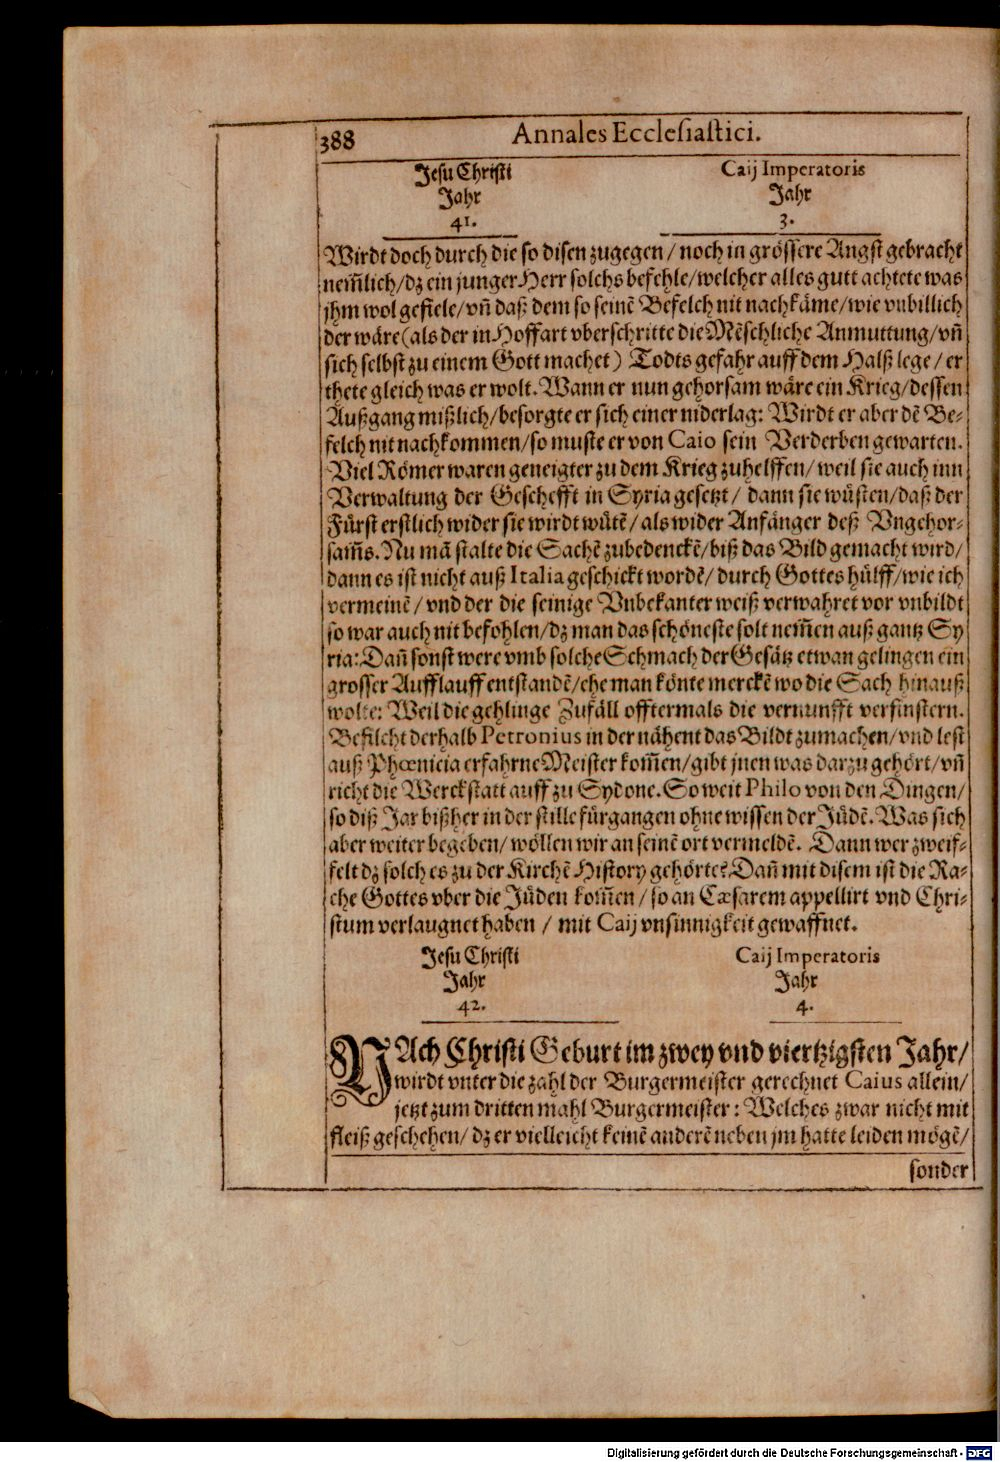 388 Annales Ecclesiastici.
Jesu Christi Caij Imperatoris
Jahr Jahr
41. 3.
Wirdt doch durch die so disen zugegen / noch in grössere Angst gebracht
nem̃lich / dz ein junger Herr solchs befehle / welcher alles gutt achtete was
jhm wol gefiele / vñ daß dem so seinẽ Befelch nit nachkäme / wie vnbillich
der wäre (als der in Hoffart vberschritte die Mẽschliche Anmuttung / vñ
sich selbst zu einem Gott machet) Todts gefahr auff dem Halß lege / er
thete gleich was er wolt. Wann er nun gehorsam wäre ein Krieg / dessen
Außgang mißlich / besorgte er sich einer niderlag: Wirdt er aber dẽ Be-
felch nit nachkommen / so muste er von Caio sein Verderben gewarten.
Viel Römer waren geneigter zu dem Krieg zuhelffen / weil sie auch inn
Verwaltung der Geschefft in Syria gesetzt / dann sie wüsten / daß der
Fürst erstlich wider sie wirdt wütẽ / als wider Anfänger deß Vngehor-
sam̃s. Nu mã stalte die Sachẽ zubedenckẽ / biß das Bild gemacht wird /
dann es ist nicht auß Italia geschickt wordẽ / durch Gottes hülff / wie ich
vermeinẽ / vnd der die seinige Vnbekanter weiß verwahret vor vnbildt
so war auch nit befohlen / dz man das schöneste solt nem̃en auß gantz Sy
ria: Dañ sonst were vmb solche Schmach der Gesätz etwan gelingen ein
grosser Aufflauff entstandẽ / ehe man könte merckẽ wo die Sach hinauß
wolte: Weil die gehlinge Zufäll offtermals die vernunfft verfinstern.
Befilcht derhalb Petronius in der nähent das Bildt zumachen / vnd lest
auß Phœnicia erfahrne Meister kom̃en / gibt jnen was darzu gehört / vñ
richt die Werckstatt auff zu Sydone. So weit Philo von den Dingen /
so diß Jar bißher in der stille fürgangen ohne wissen der Jüdẽ. Was sich
aber weiter begeben / wöllen wir an seinẽ ort vermeldẽ. Dann wer zweif-
felt dz solches zu der Kirchẽ History gehörte? Dañ mit disem ist die Ra-
che Gottes vber die Jüden kom̃en / so an Cæsarem appellirt vnd Chri-
stum verlaugnet haben / mit Caij vnsinnigkeit gewaffnet.
Jesu Christi Caij Imperatoris
Jahr Jahr
42. 4.
NAch Christi Geburt im zwey vnd viertzigsten Jahr /
wirdt vnter die zahl der Burgermeister gerechnet Caius allein /
jetzt zum dritten mahl Burgermeister: Welches zwar nicht mit
fleiß geschehen / dz er vielleicht keinẽ anderẽ neben jm hatte leiden mögẽ /
sonder
Digitalisierung gefördert durch die Deutsche Forschungsgemeinschaft - DFG